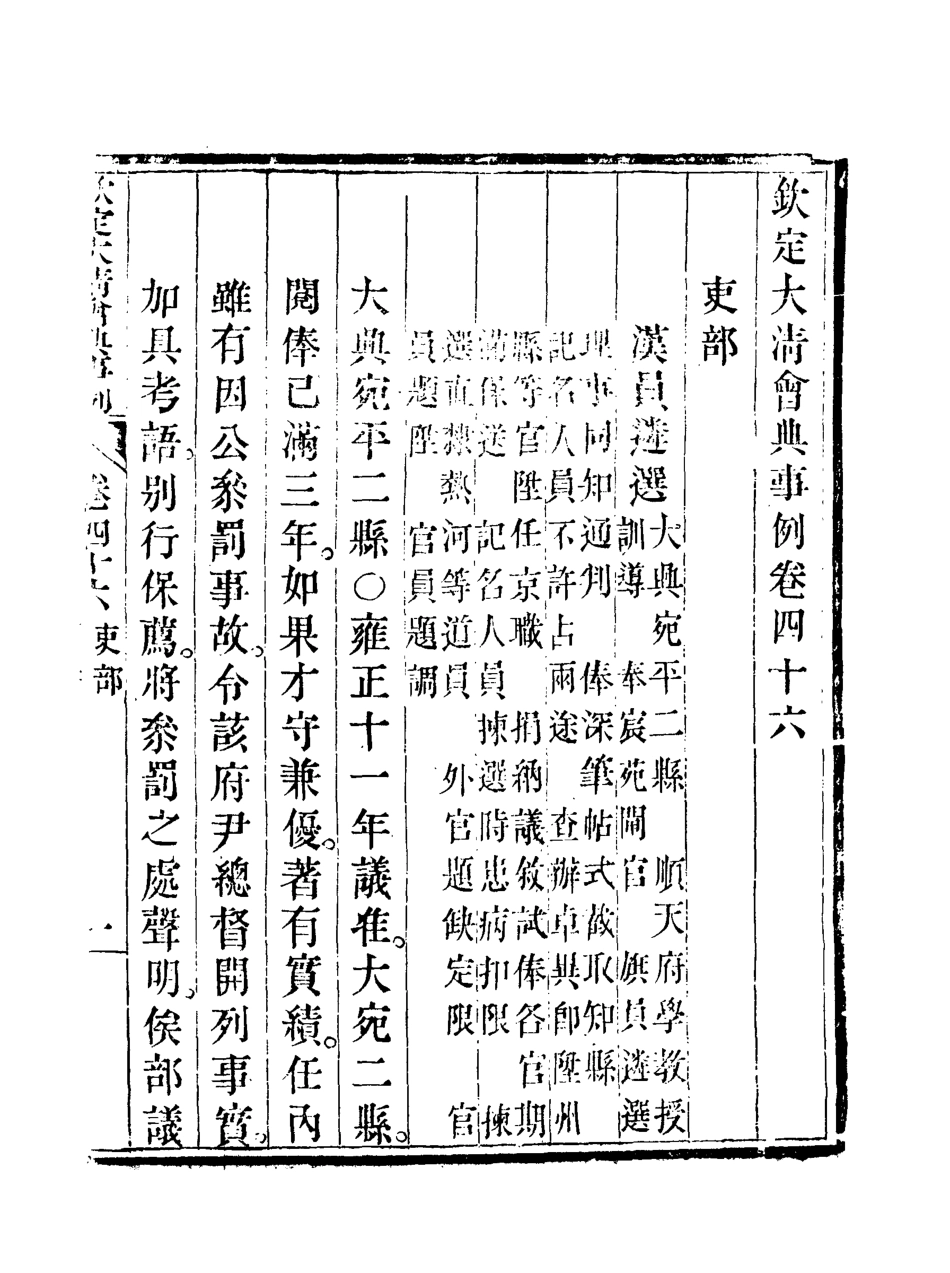 欽定大清會典事例卷四十六
吏部
漢員遴選
大興宛平二縣　順天府學教授
訓導　奉宸苑閘官　旗員遴選
理事同知通判　俸深筆帖式截取知縣
記名人員不許占兩途　查辦卓異卽陞州
縣等官陞任京職　捐納議敘試俸各官期
滿保送　記名人員　揀選時患病扣限　揀
選直隸熱河等道員　外官題缺定限　官
員題陞　官員題調
大興宛平二縣○雍正十一年議准。大宛二縣。
閱俸已滿三年。如果才守兼優。著有實績。任內
雖有因公叅罰事故。令該府尹總督開列事實。
加具考語。別行保薦。將叅罰之處聲明。俟部議
欽定大清會典事例　卷四十六　吏部　一